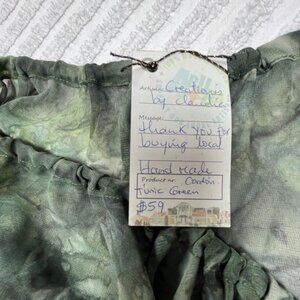 Artisan: Creations
by Claudia
Message:
thank you for
buying local
Hand made
Product nr. Cotton
Tunic Green
$59